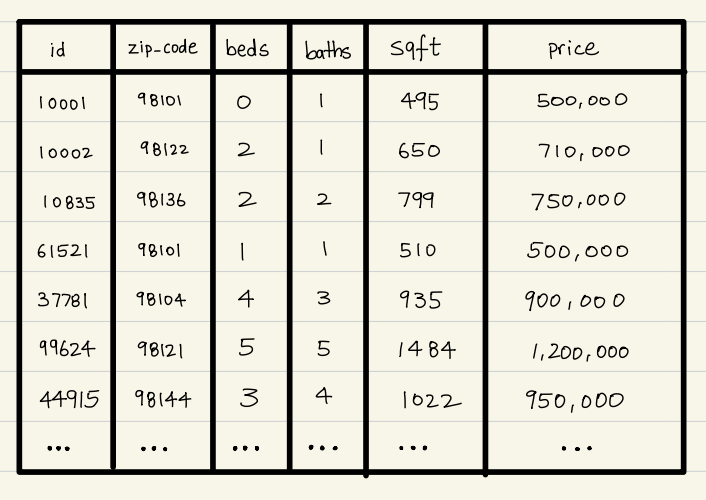 id zip-code beds baths sqft price
10001 98101 0 1 495 500,000
10002 98122 2 1 650 710,000
10835 98136 2 2 799 750,000
61521 98101 1 1 510 500,000
37781 98104 4 3 935 900,000
99624 98121 5 5 1484 1,200,000
44915 98144 3 4 1022 950,000
... ... ... ... ... ...